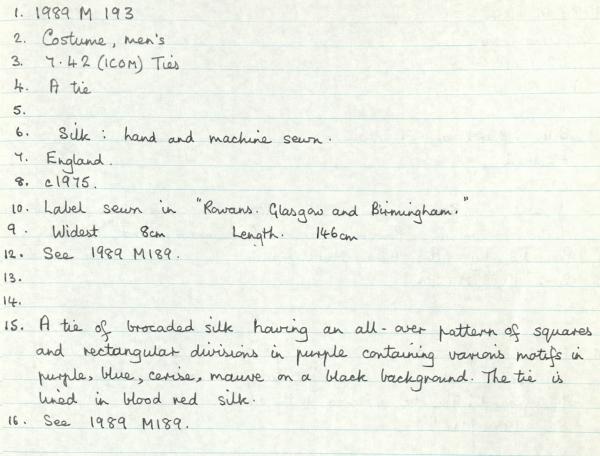 1. 1989 M 193
2. Costume, men's
3. 7.42 (ICOM) Ties
4. A tie
5.
6. Silk : hand and machine sewn.
7. England.
8. c1975.
10. Label sewn in "Rowans. Glasgow and Birmingham."
9. Widest 8cm Length. 146cm
12. See 1989 M189.
13.
14.
15. A tie of brocaded silk having an all-over pattern of squares
and rectangular divisions in purple containing various motifs in
purple, blue, cerise, mauve on a black background. The tie is
lined in blood red silk.
16. See 1989 M189.